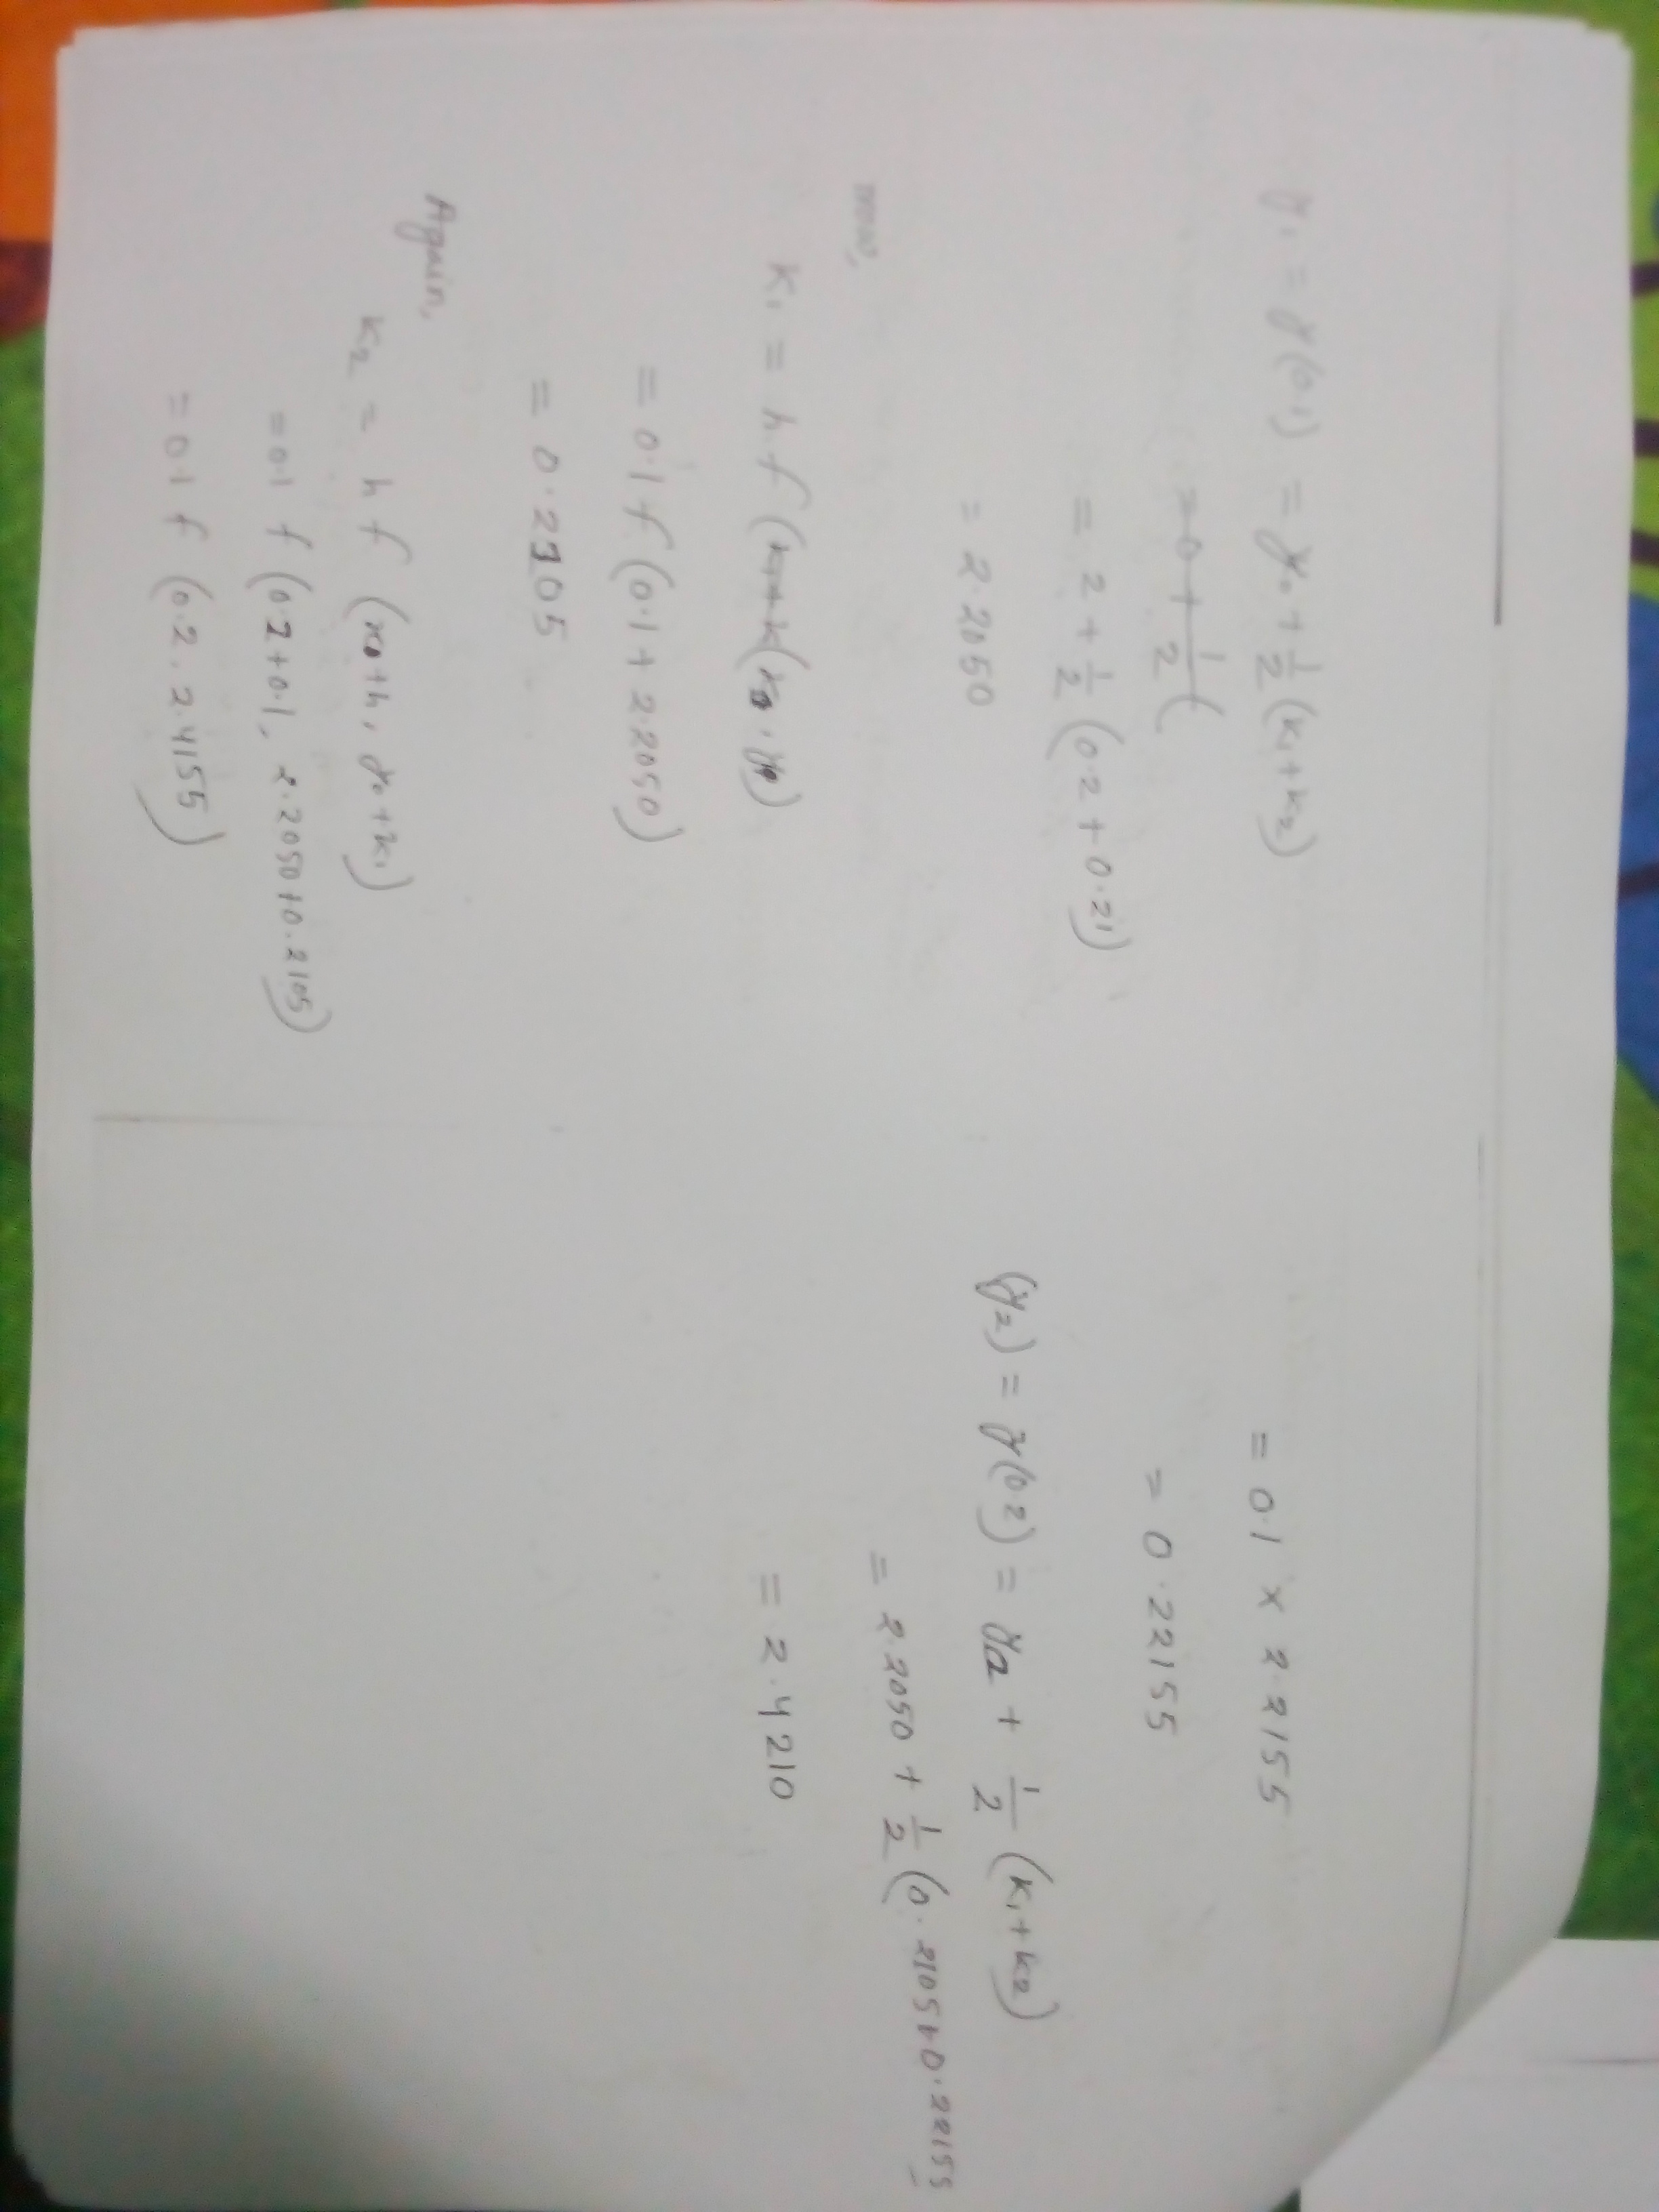 y₁ = y(0.1) = y₀ + 1/2 (K₁+K₂)
= 0 + 1/2 (
= 2 + 1/2 (0.2 + 0.21)
= 2.2050
now,
K₁ = h f (
= 0.1 f (0.1 + 2.2050)
= 0.2105
Again,
K₂ = h f (x₀+h, y₀+K₁)
= 0.1 f (0.2+0.1, 2.2050+0.2105)
= 0.1 f (0.2, 2.4155)
= 0.1 × 2.2155
= 0.22155
(y₂) = y(0.2) = y₂ + 1/2 (K₁+K₂)
= 2.2050 + 1/2 (0.2105+0.22155
= 2.4210